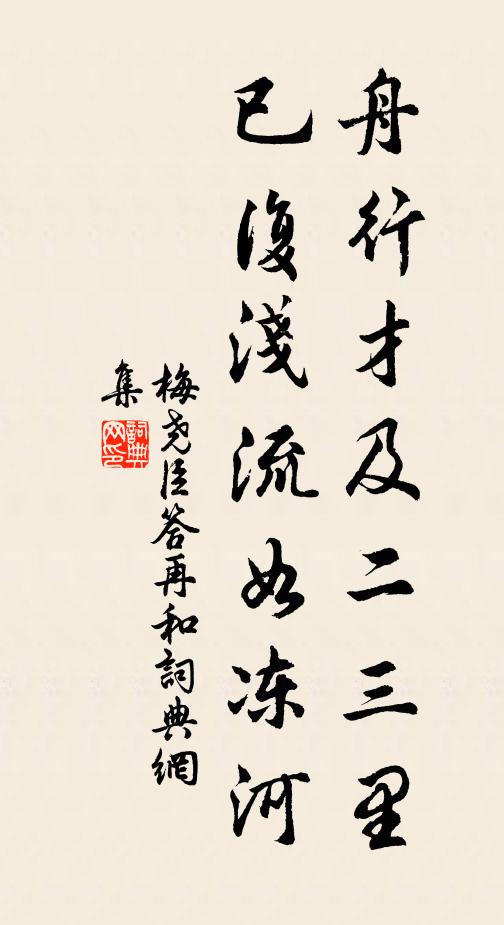 舟行才及二三里
已復淺流如冻河
梅尧臣答再和詞典網
集
詞典
网印